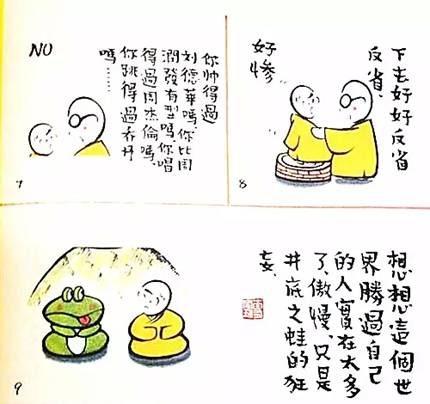 你帅得過
刘德華嗎,你比周
潤發有型嗎你唱
得過周杰倫嗎,
你跳得過乔丹
嗎……
NO
7
下去好好反省
反省、
好惨
8
想想這個世
界勝過自己
的人實在太多
了,傲慢,只是
井底之蛙的狂
妄、
9